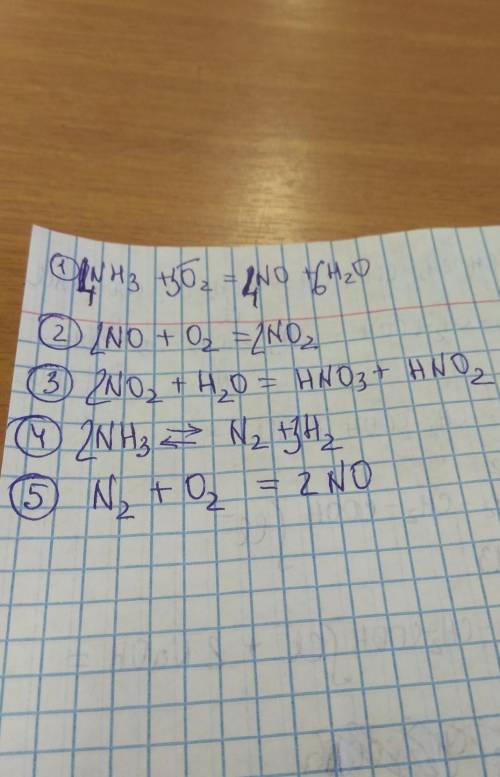 ① 4NH₃ + 5O₂ = 4NO + 6H₂O
② 2NO + O₂ = 2NO₂
③ 2NO₂ + H₂O = HNO₃ + HNO₂
④ 2NH₃ ⇄ N₂ + 3H₂
⑤ N₂ + O₂ = 2NO